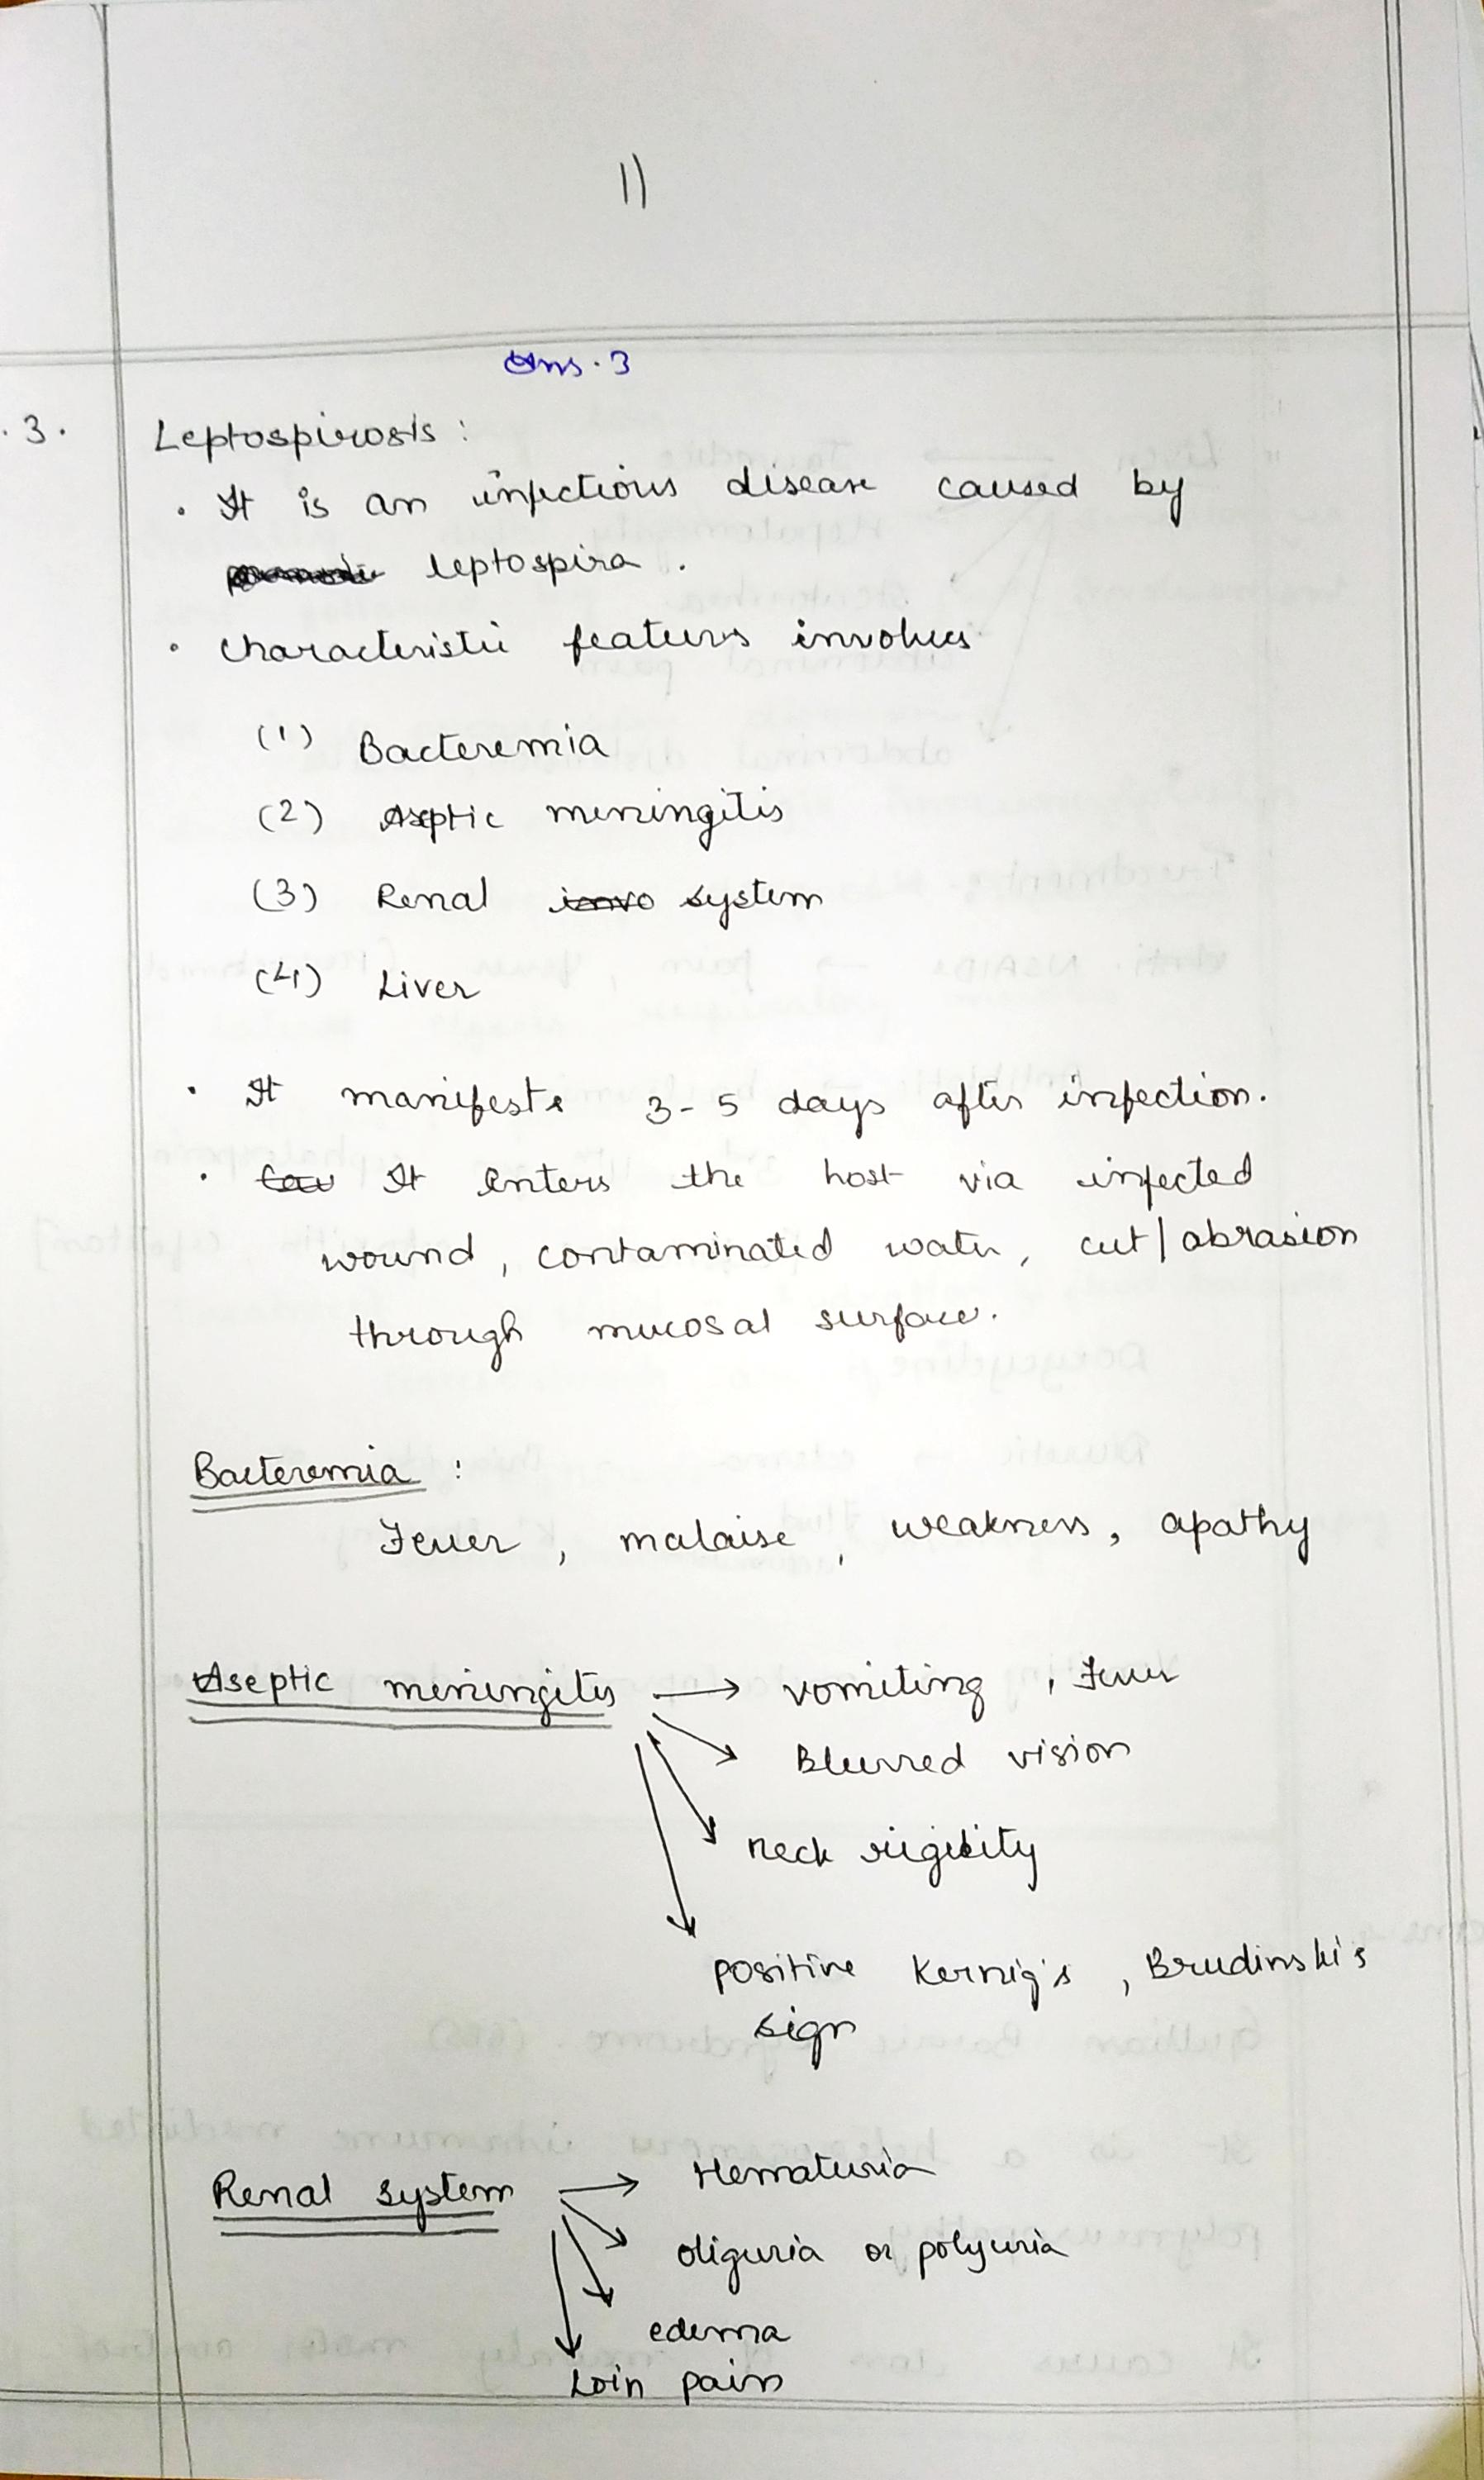 11
Ans. 3
.3. Leptospirosis :
· It is an infectious disease caused by
leptospira .
· Characteristic features involves
(1) Bacteremia
(2) Aseptic meningitis
(3) Renal invo system
(4) Liver
· It manifests 3-5 days after infection.
· It enters the host via infected
wound, contaminated water, cut/abrasion
through mucosal surface.
Bacteremia :
Fever, malaise, weakness, apathy
Aseptic meningitis → vomiting, Fever
Blurred vision
neck rigidity
positive Kernig's, Brudinski's
sign
Renal system → Hematuria
oliguria or polyuria
edema
Loin pain